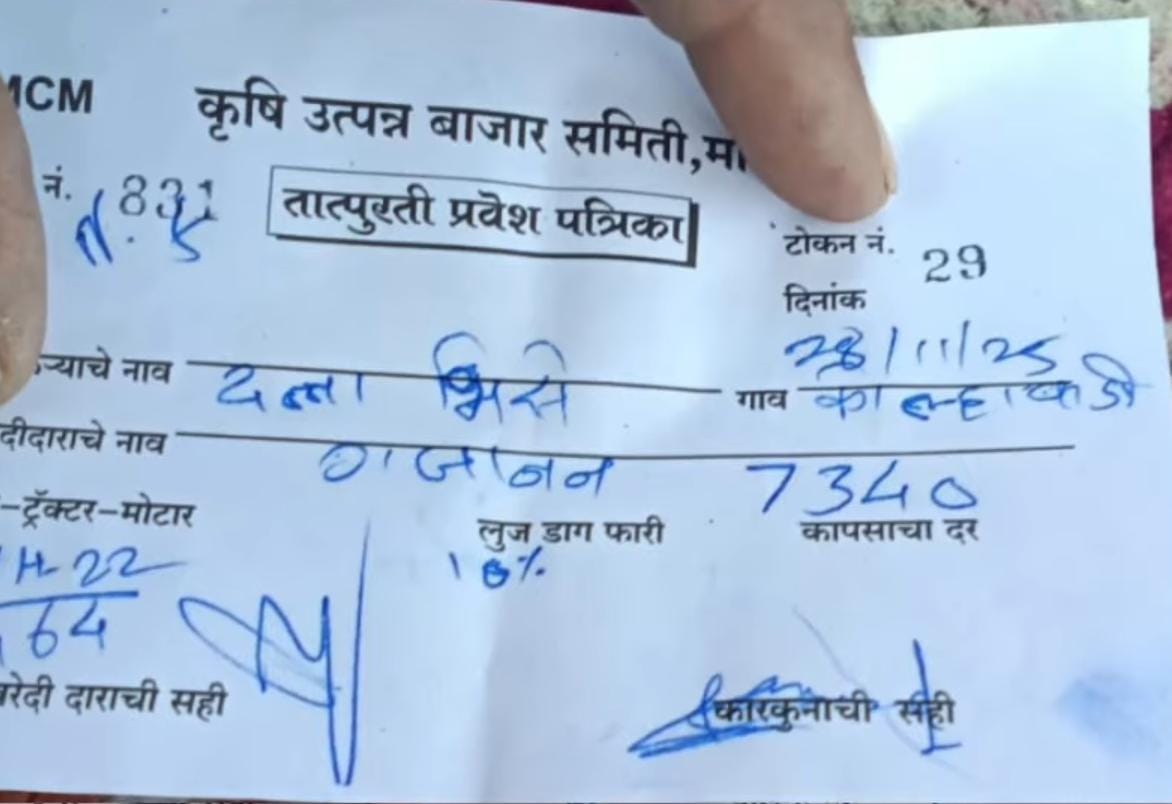 MCM कृषि उत्पन्न बाजार समिती, मा
नं. 831 तात्पुरती प्रवेश पत्रिका
टोकन नं. 29
दिनांक
28/11/25
ऱ्याचे नाव दत्ता भिसे गाव काल्हावाडी
दीदाराचे नाव गजानन 7340
-ट्रॅक्टर-मोटार लुज डाग फारी कापसाचा दर
H-22 10%
64
रेदी दाराची सही कारकुनाची सही